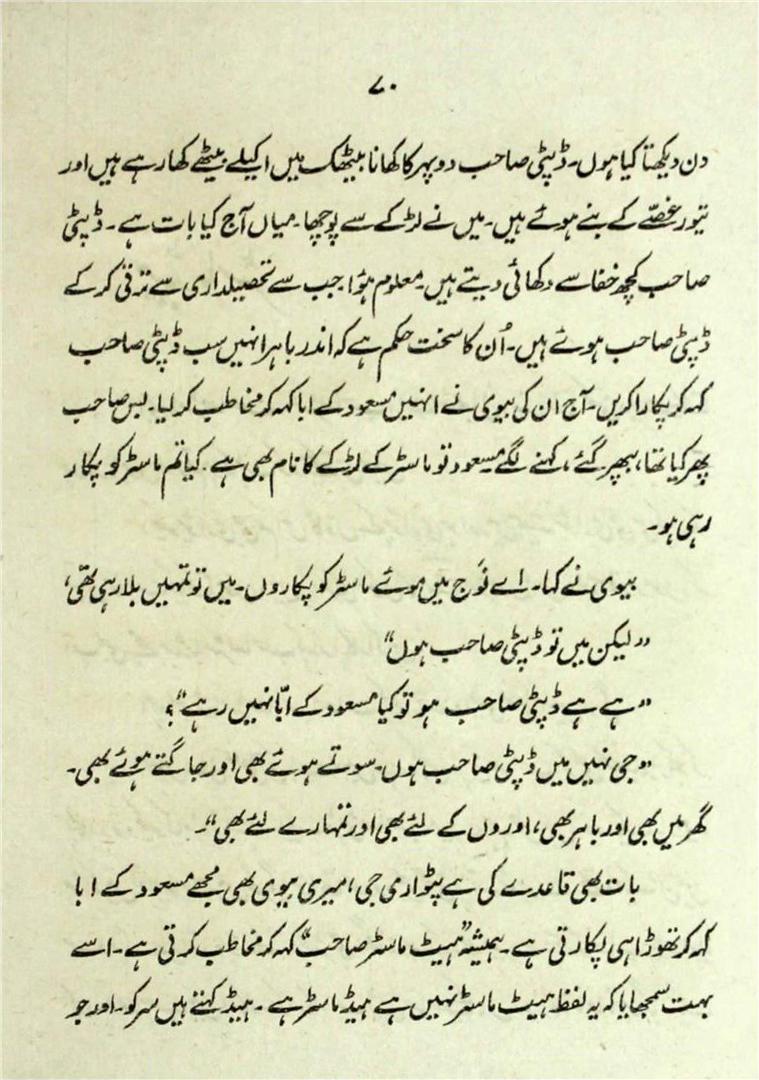 ۷۰
دن دیکھتا کیا ہوں۔ ڈپٹی صاحب دوپہر کا کھانا بیٹھک میں اکیلے بیٹھے کھا رہے ہیں اور
تیور غصّے کے بنے ہوئے ہیں۔ میں نے لڑکے سے پوچھا۔ میاں آج کیا بات ہے۔ ڈپٹی
صاحب کچھ خفا سے دکھائی دیتے ہیں۔ معلوم ہؤا جب سے تحصیلداری سے ترقی کر کے
ڈپٹی صاحب ہوئے ہیں۔ اُن کا سخت حکم ہے کہ اندر باہر انہیں سب ڈپٹی صاحب
کہہ کر پکارا کریں۔ آج ان کی بیوی نے انہیں مسعود کے ابا کہہ کر مخاطب کر لیا۔ بس صاحب
پھر کیا تھا، بپھر گئے، کہنے لگے مسعود تو ماسٹر کے لڑکے کا نام بھی ہے۔ کیا تم ماسٹر کو پکار
رہی ہو۔
بیوی نے کہا۔ اے نَوج میں موئے ماسٹر کو پکاروں۔ میں تو تمہیں بلا رہی تھی،
”لیکن میں تو ڈپٹی صاحب ہوں“
”ہے ہے ڈپٹی صاحب ہو تو کیا مسعود کے ابّا نہیں رہے“؟
”جی نہیں میں ڈپٹی صاحب ہوں۔ سوتے ہوئے بھی اور جاگتے ہوئے بھی۔
گھر میں بھی اور باہر بھی، اوروں کے لئے بھی اور تمہارے لئے بھی“۔
بات بھی قاعدے کی ہے پٹواری جی، میری بیوی بھی مجھے مسعود کے ابا
کہہ کر تھوڑا ہی پکارتی ہے۔ ہمیشہ ”ہیٹ ماسٹر صاحب“ کہہ کر مخاطب کرتی ہے۔ اسے
بہت سمجھایا کہ یہ لفظ ہیٹ ماسٹر نہیں ہے ہیڈ ماسٹر ہے۔ ہیڈ کہتے ہیں سر کو۔ اور جو